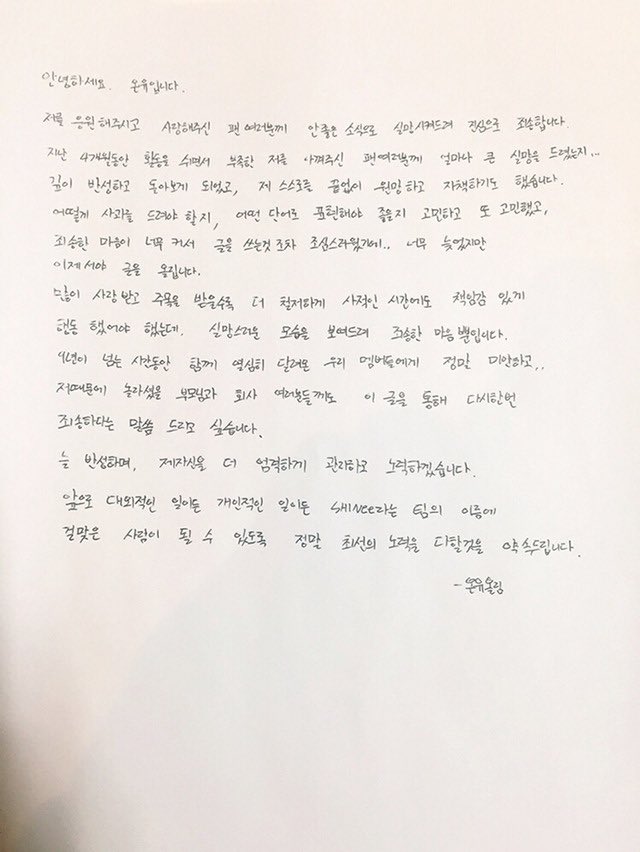 안녕하세요. 온유입니다.
저를 응원해주시고 사랑해주신 팬여러분께 안좋은 소식으로 실망시켜드려 진심으로 죄송합니다.
지난 4개월동안 활동을 쉬면서 부족한 저를 아껴주신 팬여러분께 얼마나 큰 실망을 드렸는지...
깊이 반성하고 돌아보게 되었고, 제 스스로를 끝없이 원망하고 자책하기도 했습니다.
어떻게 사과를 드려야 할지, 어떤 단어로 표현해야 좋을지 고민하고 또 고민했고,
죄송한 마음이 너무 커서 글을 쓰는것 조차 조심스러웠기에.. 너무 늦었지만
이제서야 글을 올립니다.
많이 사랑받고 주목을 받을수록 더 철저하게 사적인 시간에도 책임감 있게
행동 했어야 했는데. 실망스러운 모습을 보여드려 죄송한 마음뿐입니다.
9년이 넘는 시간동안 함께 열심히 달려온 우리 멤버들에게 정말 미안하고..
저때문에 놀라셨을 부모님과 회사 여러분들께도 이 글을 통해 다시한번
죄송하다는 말씀 드리고 싶습니다.
늘 반성하며, 제자신을 더 엄격하게 관리하고 노력하겠습니다.
앞으로 대외적인 일이든 개인적인 일이든 SHINee라는 팀의 이름에
걸맞은 사람이 될 수 있도록 정말 최선의 노력을 다할것을 약속드립니다.
-온유올림